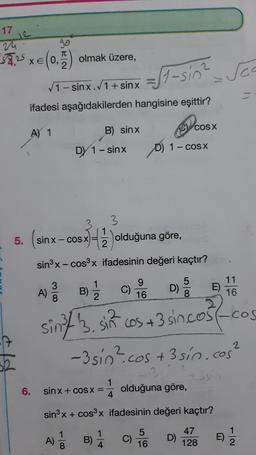 17
12
24
30
4. x ∈ (0, π/2) olmak üzere,
√1 – sinx . √1 + sinx = √1-sin² = √co
ifadesi aşağıdakilerden hangisine eşittir?
A) 1 B) sinx C) cosx
D) 1 – sinx D) 1 – cosx
3 3
5. (sinx – cosx) = (1/2) olduğuna göre,
sin³x – cos³x ifadesinin değeri kaçtır?
A) 3/8 B) 1/2 C) 9/16 D) 5/8 E) 11/16
sin³ - 3. sin² cos + 3 sin cos² - cos
-3sin².cos + 3 sin. cos²
6. sinx + cosx = 1/4 olduğuna göre,
sin³x + cos³x ifadesinin değeri kaçtır?
A) 1/8 B) 1/4 C) 5/16 D) 47/128 E) 1/2